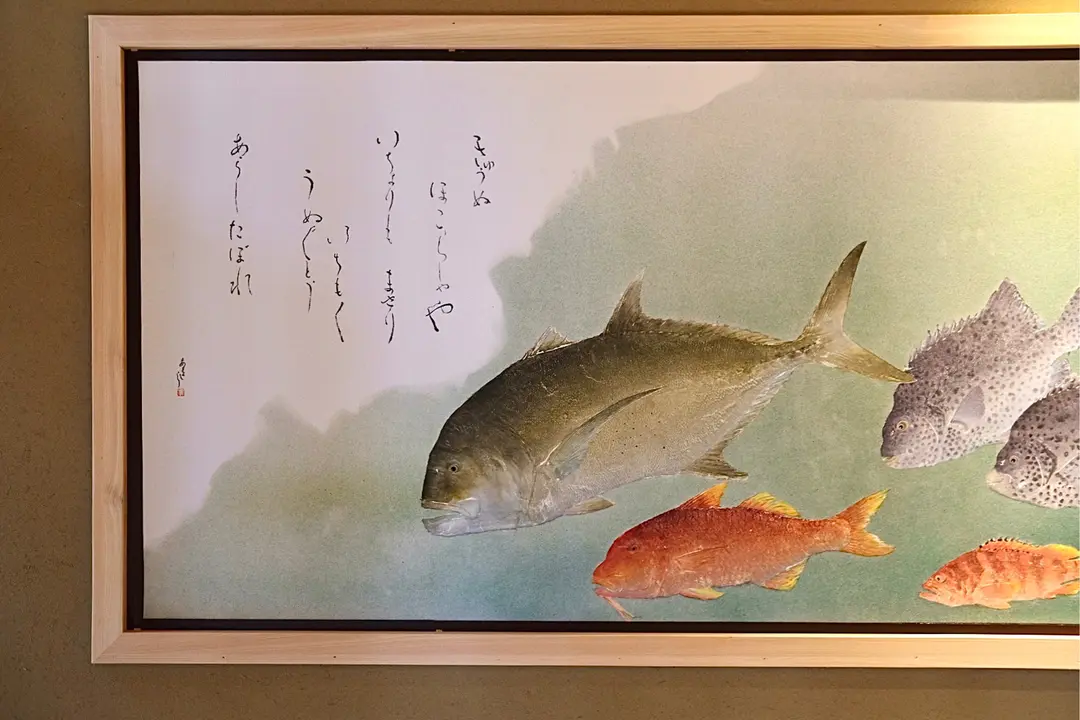 きゅうぬ
ほこらしゃや
いちよりも まさり
いちも
うぬぐとぅ
あらしたぼれ